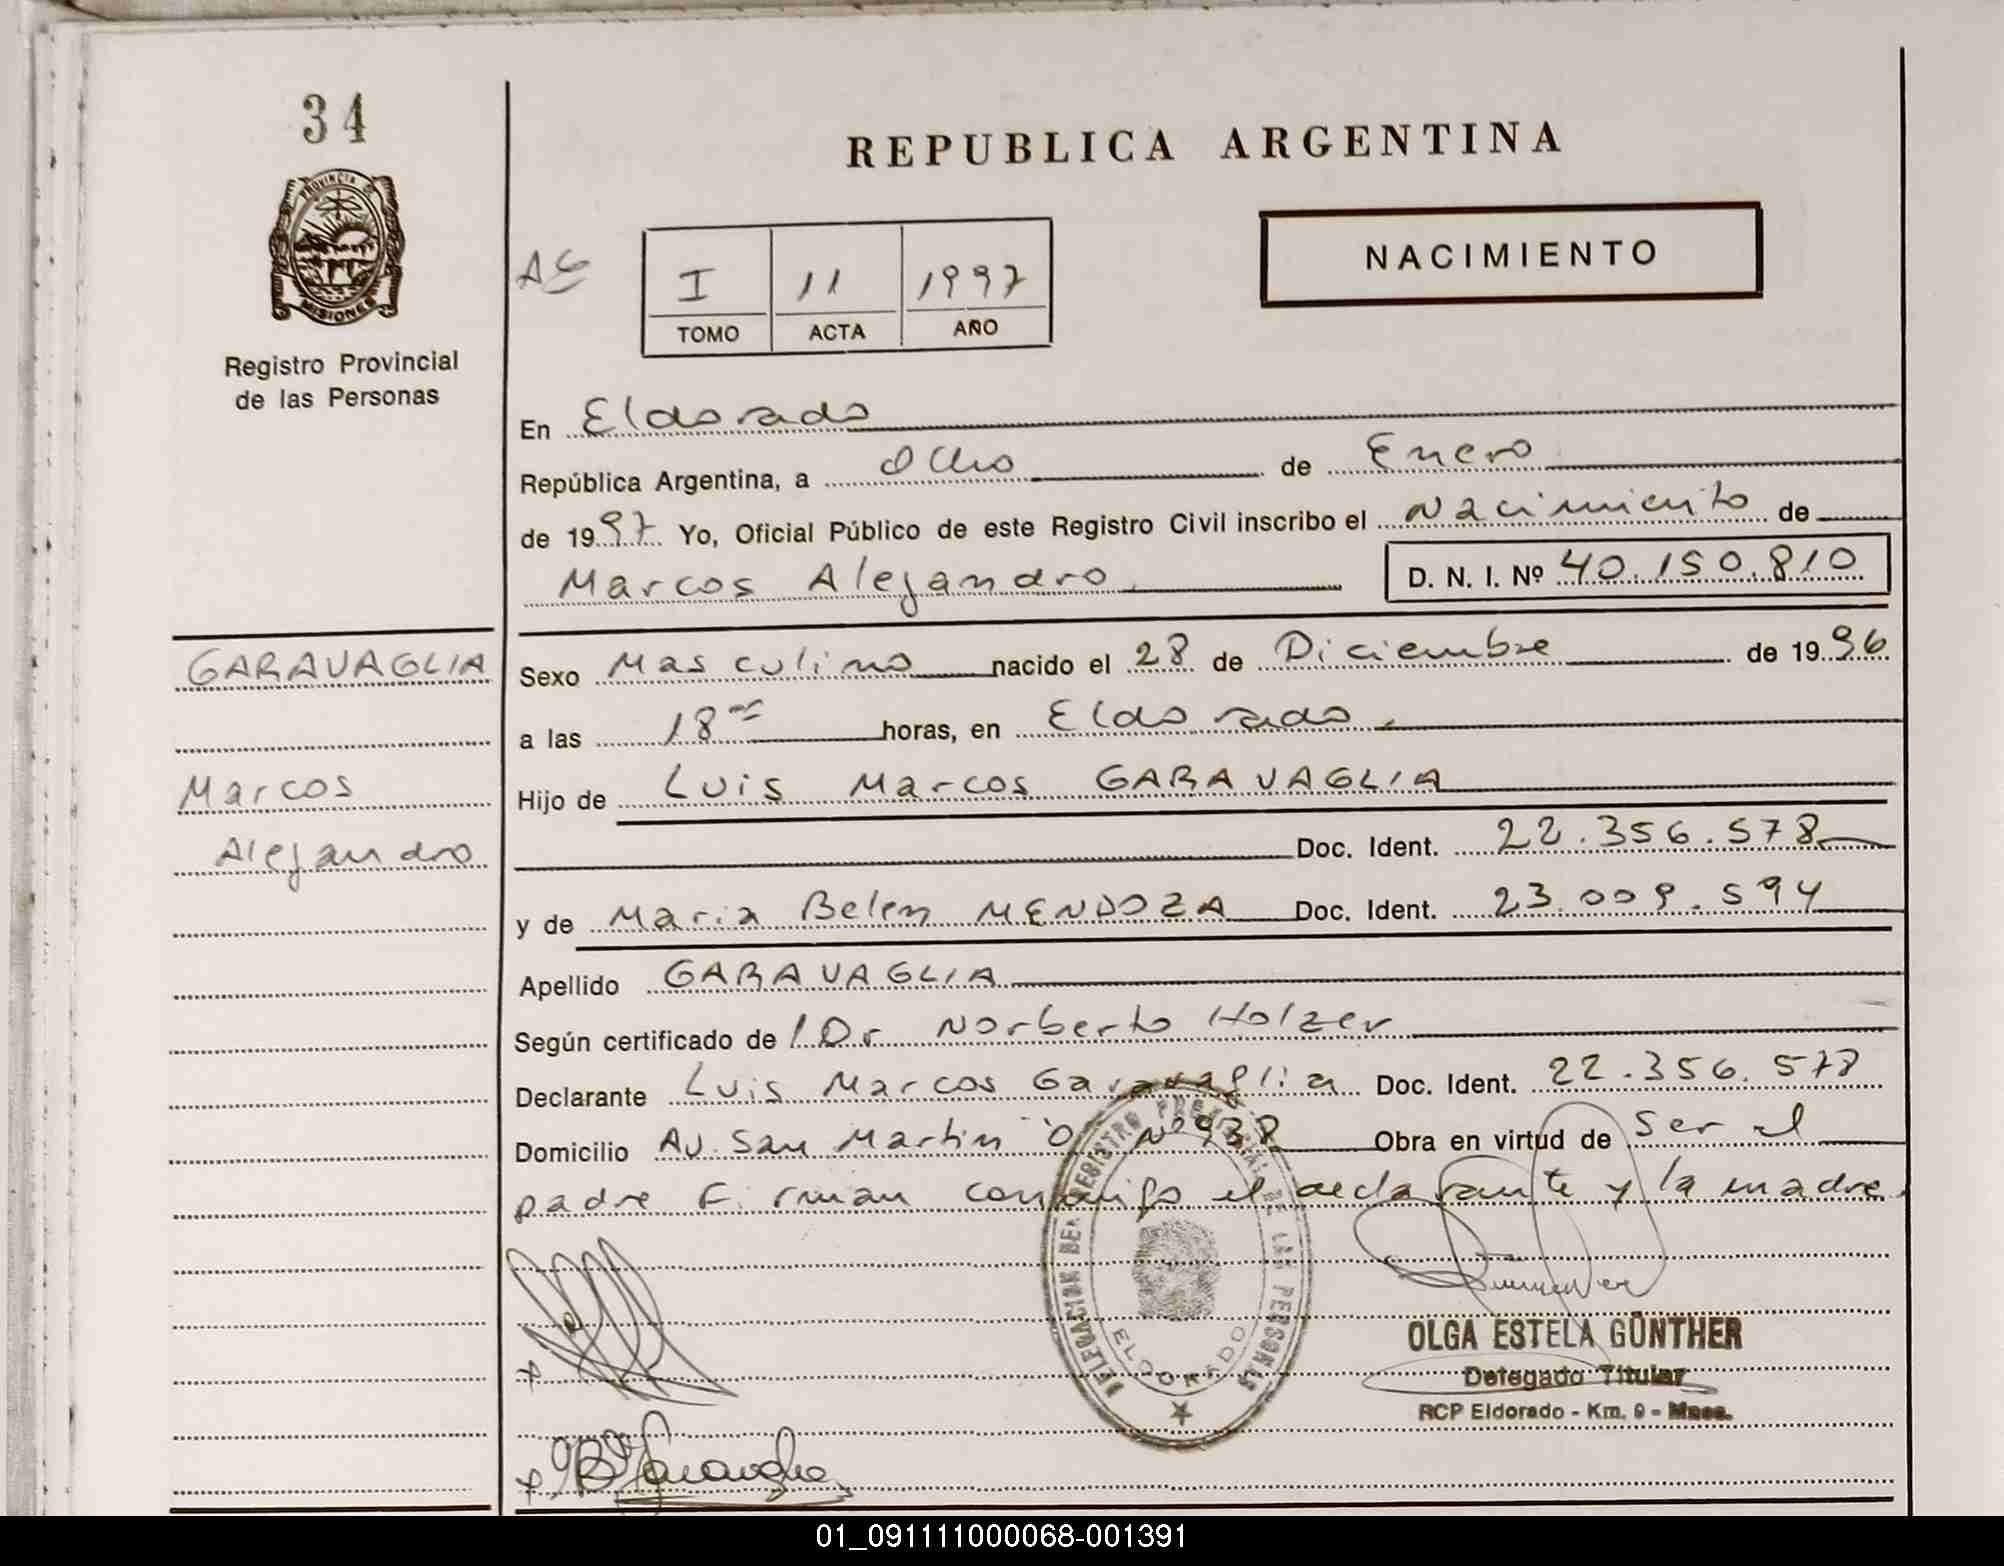 34
PROVINCIA DE
MISIONES
Registro Provincial
de las Personas
REPUBLICA ARGENTINA
NACIMIENTO
AG
I 11 1997
TOMO ACTA AÑO
En Eldorado
República Argentina, a Ocho de Enero
de 1997 Yo, Oficial Público de este Registro Civil inscribo el Nacimiento de
Marcos Alejandro D. N. I. Nº 40.150.810
GARAVAGLIA
Marcos
Alejandro
Sexo Masculino nacido el 28 de Diciembre de 1996
a las 18 horas, en Eldorado.
Hijo de Luis Marcos GARAVAGLIA
Doc. Ident. 22.356.578
y de Maria Belen MENDOZA Doc. Ident. 23.009.594
Apellido GARAVAGLIA
Según certificado de / Dr Norberto Holzer
Declarante Luis Marcos Garavaglia Doc. Ident. 22.356.578
Domicilio Av. San Martin "O" Nº 938 Obra en virtud de ser el
padre Firman conmigo el declarante y la madre.
DELEGACION DEL REGISTRO PROVINCIAL DE LAS PERSONAS
ELDORADO
OLGA ESTELA GÜNTHER
Delegado Titular
RCP Eldorado - Km. 9 - Mnes.
01_091111000068-001391